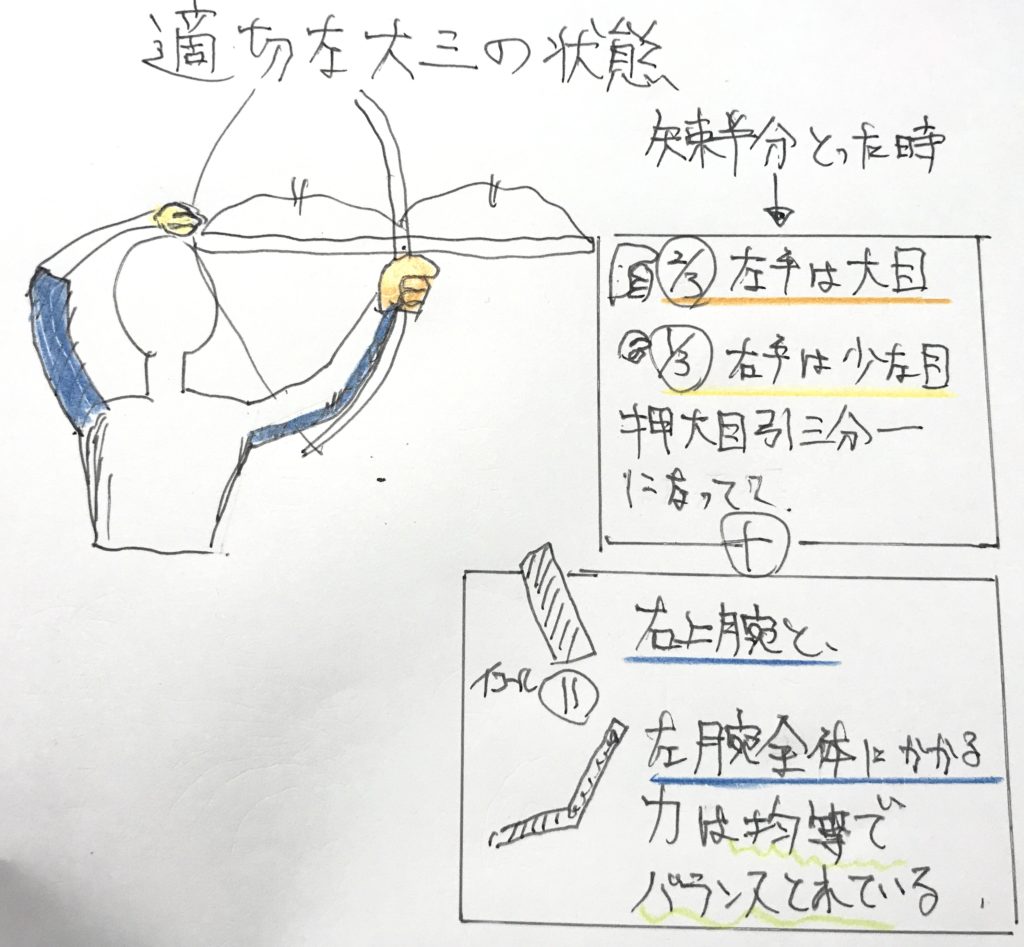 適切な大三の状態
矢束半分とった時
2/3 左手は大目
1/3 右手は少な目
押大目引三分一
になってて、
+
右上腕と、
イコール =
左腕全体にかかる
力は均等で
バランスとれている.